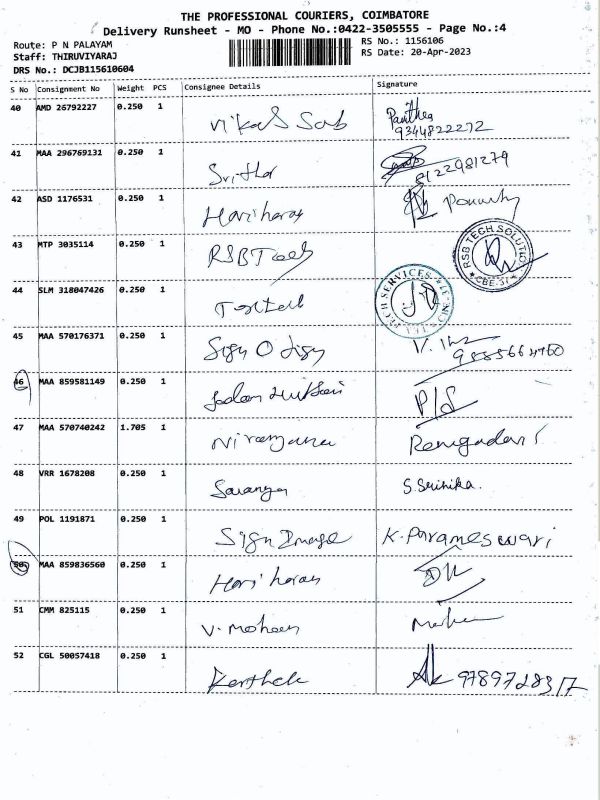 THE PROFESSIONAL COURIERS, COIMBATORE
Delivery Runsheet - MO - Phone No.:0422-3505555 - Page No.:4
Route: P N PALAYAM
RS No.: 1156106
Staff: THIRUVIYARAJ
RS Date: 20-Apr-2023
DRS No.: DCJB115610604
S No Consignment No Weight PCS Consignee Details Signature
40 AMD 26792227 0.250 1 Vikas Sab
9344822272
41 MAA 296769131 0.250 1 Srithar 8122981279
42 ASD 1176531 0.250 1 Hariharan
43 MTP 3035114 0.250 1 RSB Tech RSB TECH SOLUTIO CBE-37
44 SLM 318047426 0.250 1 TECH SERVICES
45 MAA 570176371 0.250 1 Sign O
46 MAA 859581149 0.250 1
47 MAA 570740242 1.705 1 Niranjana
48 VRR 1678208 0.250 1 Saranya S. Srinika.
49 POL 1191871 0.250 1 Sign Image K. Parameswari
50 MAA 859836560 0.250 1 Hariharan
51 CMM 825115 0.250 1 V. Mohan
52 CGL 50057418 0.250 1 9789728317